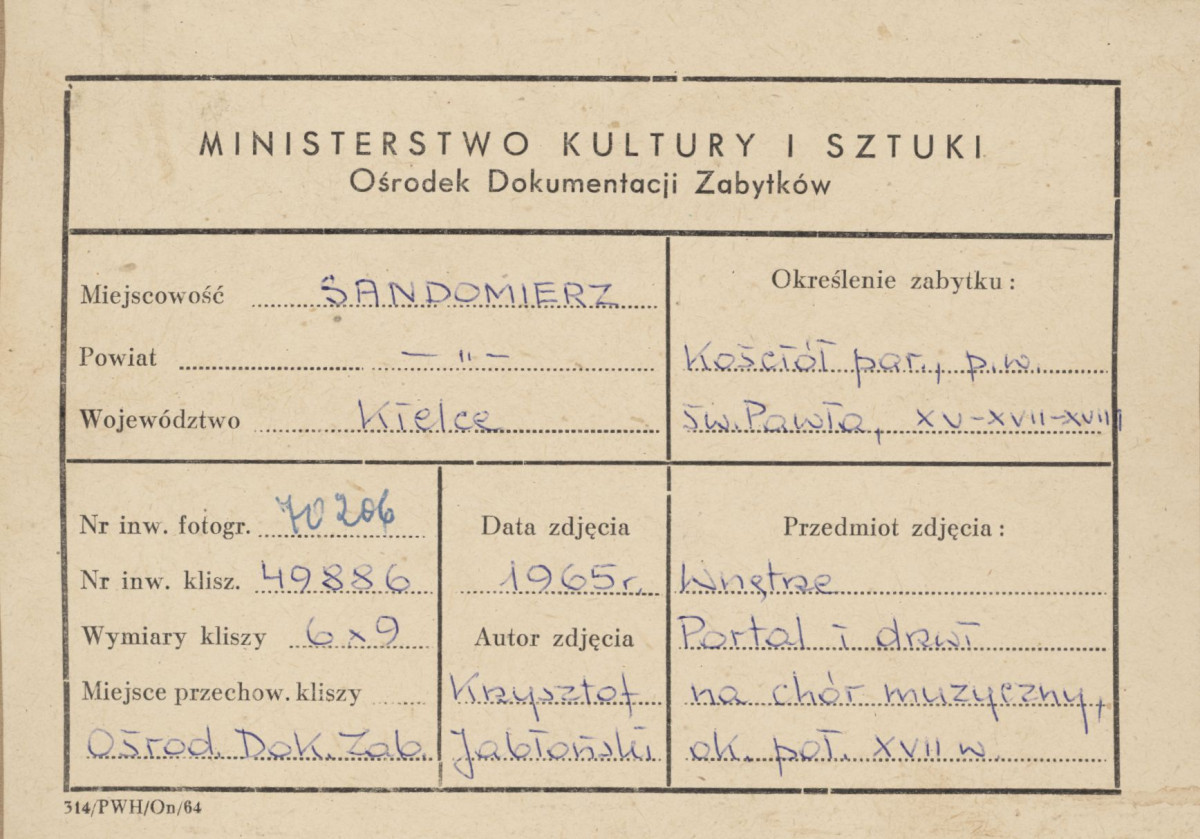 MINISTERSTWO KULTURY I SZTUKI
Ośrodek Dokumentacji Zabytków
Miejscowość SANDOMIERZ
Powiat — " —
Województwo Kielce
Określenie zabytku:
Kościół par., p.w.
św. Pawła, XV-XVII-XVIII
Nr inw. fotogr. 70206
Nr inw. klisz. 49886
Wymiary kliszy 6x9
Miejsce przechow. kliszy
Ośrod. Dok. Zab.
Data zdjęcia
1965r.
Autor zdjęcia
Krzysztof
Jabłoński
Przedmiot zdjęcia:
Wnętrze
Portal i drzwi
na chór muzyczny,
ok. poł. XVII w.
314/PWH/On/64